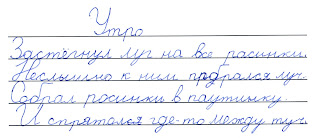 Утро
Застегнул луг на все расинки.
Неслышно к ним прдбрался луч.
Собрал росинки в паутинку
И спрятался где-то между туч.